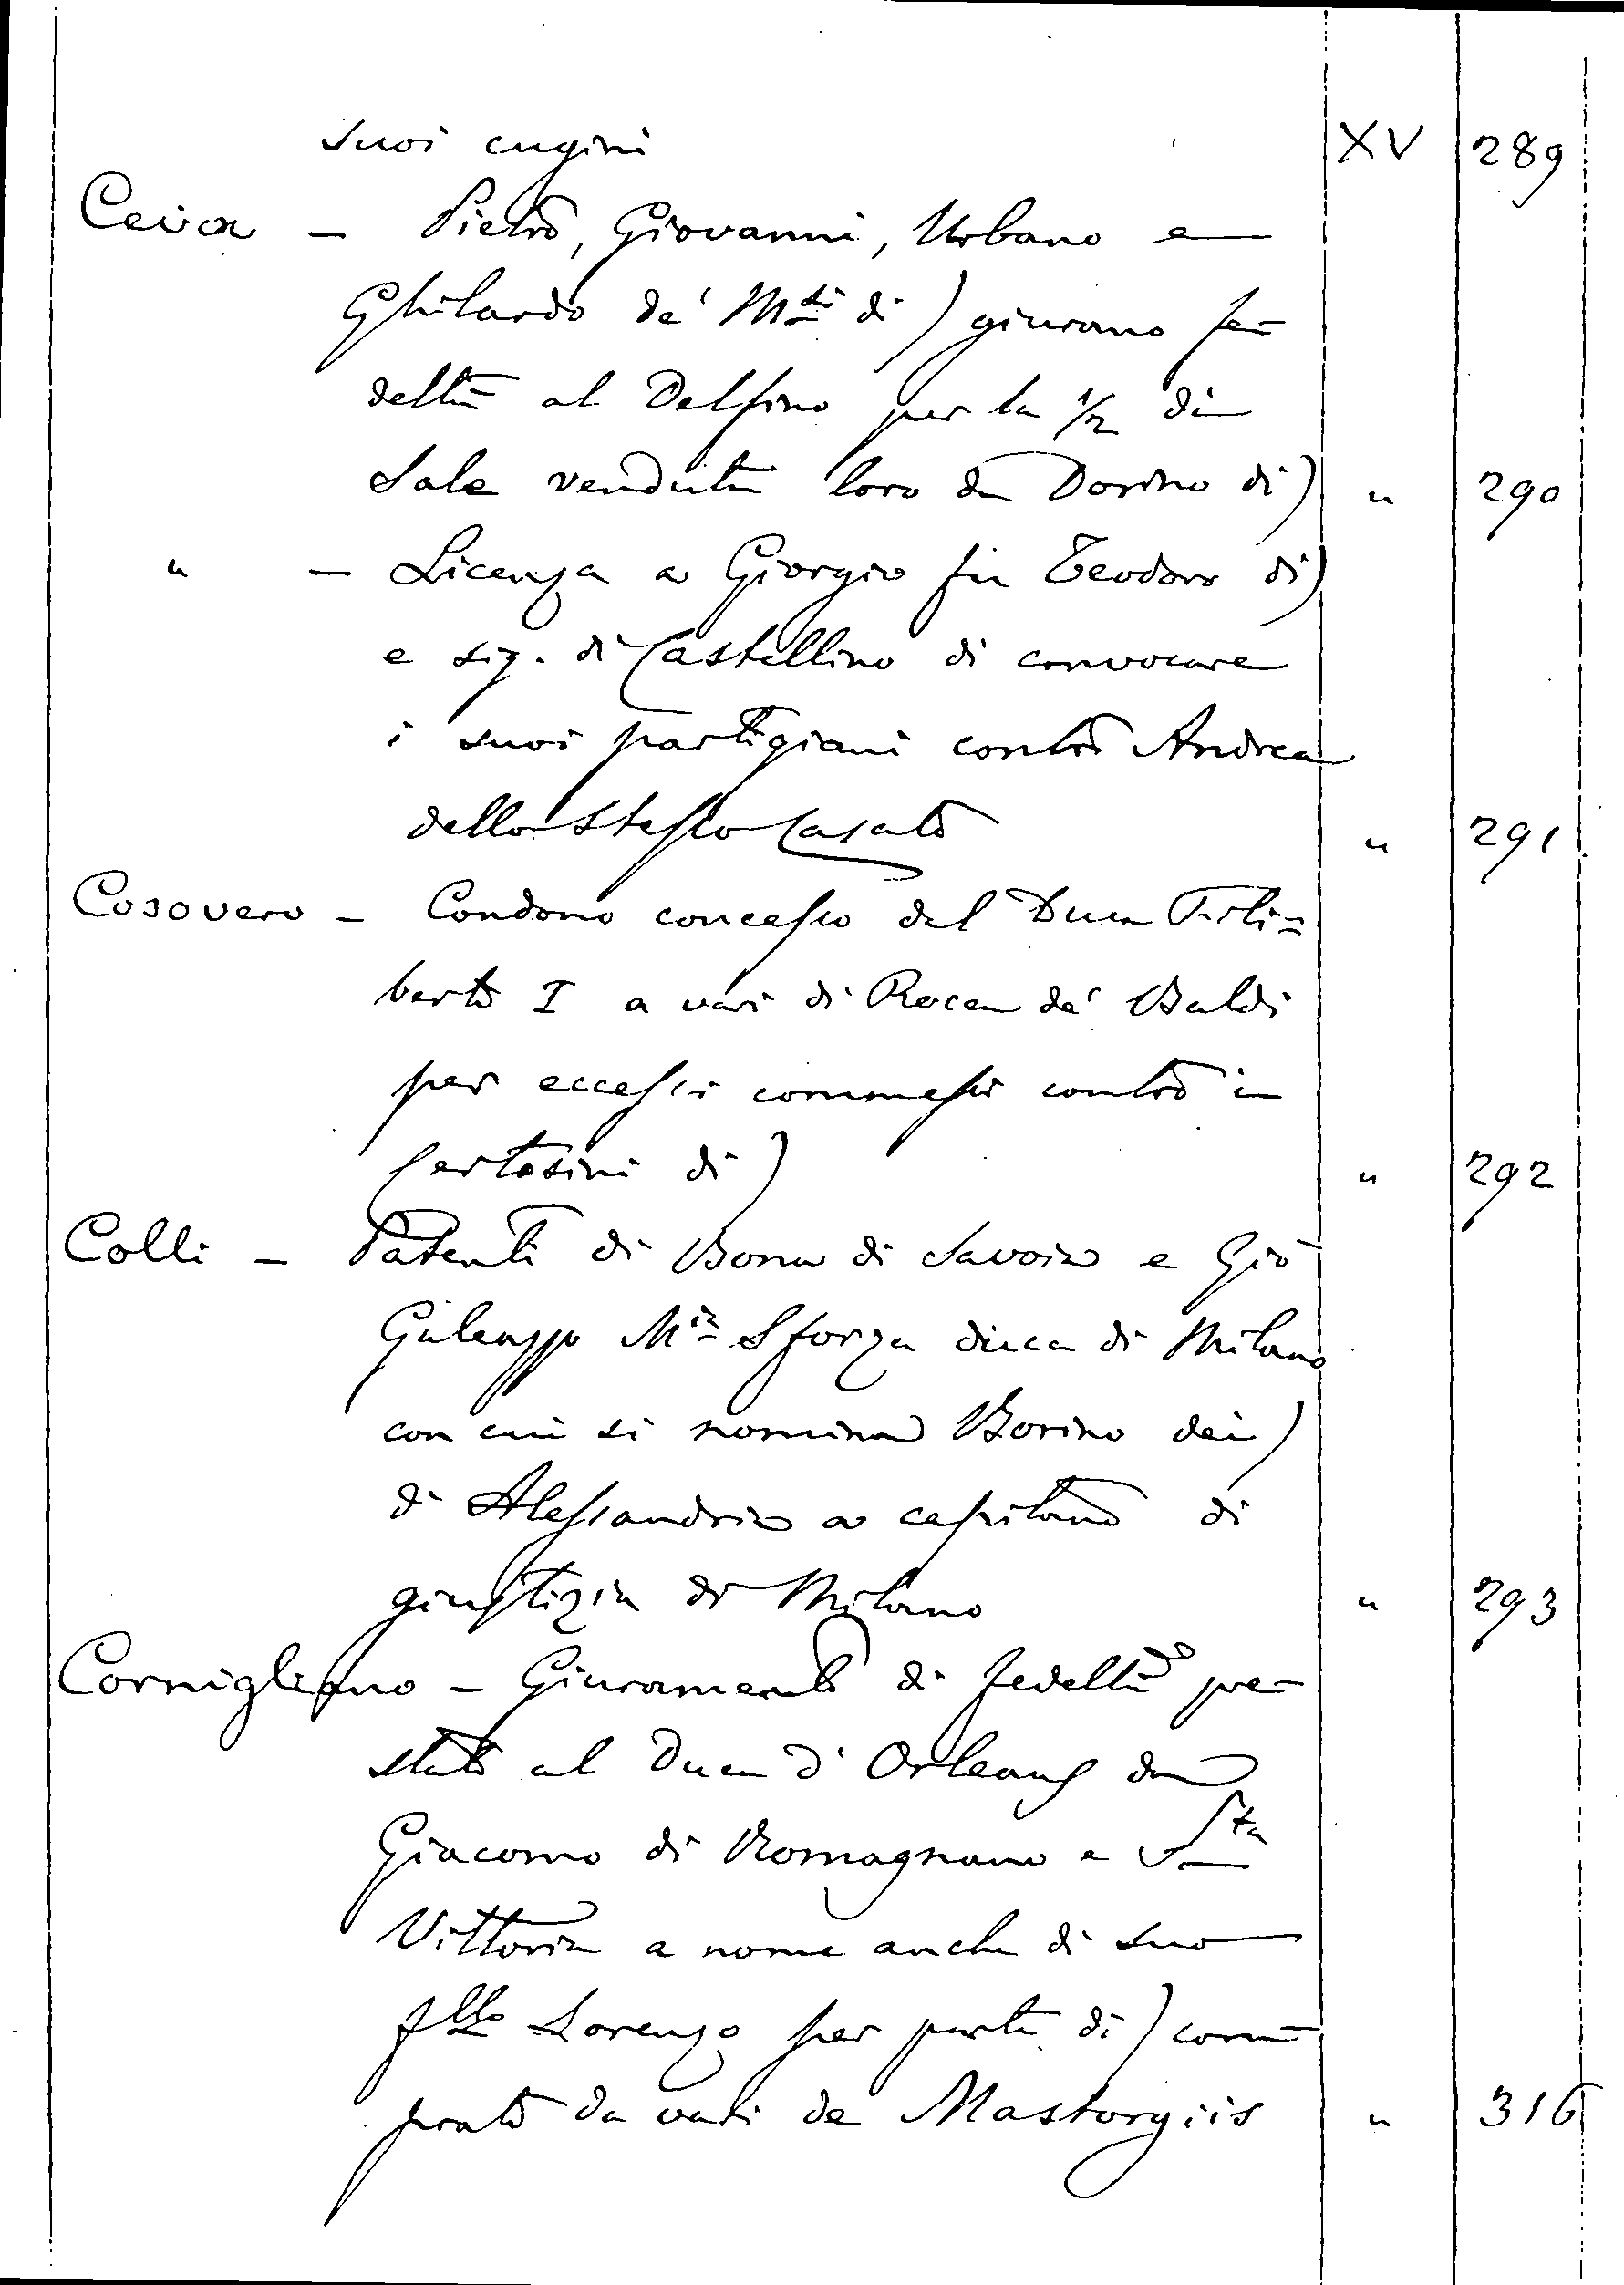 suoi cugini XV 289
Ceiva - Pietro, Giovanni, Urbano e
Ghilardo de' M.si di) giurano fe=
deltà al Delfino per la 1/2 di
Sale venduta loro da Dorino di) " 290
" - Licenza a Giorgio fu Teodoro di)
e sig. di Castellino di convocare
i suoi partigiani contro Andrea
dello stesso casato " 291
Cosovero - Condono concesso dal Duca Fili=
berto I a vari di Rocca de' Baldi
per eccessi commessi contro i
Certosini di) " 292
Colli - Patenti di Bona di Savoia e Gio
Galeazzo M.ia Sforza duca di Milano
con cui si nomina Borino dei)
di Alessandria a capitano di
giustizia di Milano " 293
Cornigliano - Giuramento di fedeltà pre=
stato al Duca d'Orleans da
Giacomo di Romagnano e S.ta
Vittoria a nome anche di suo
f.llo Lorenzo per parte di) com=
prato da vari de Mastorgiis " 316